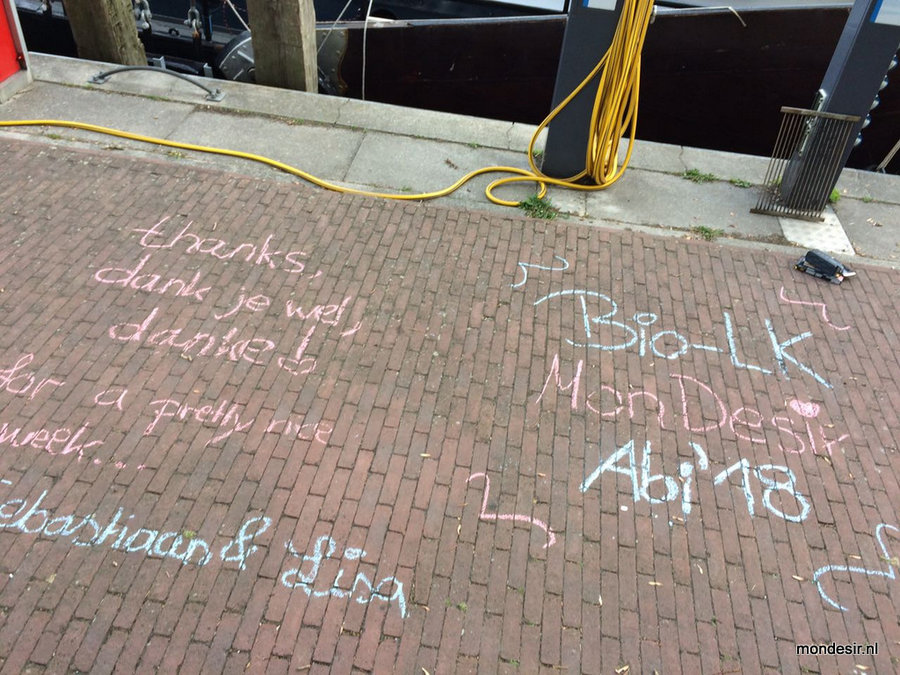 thanks,
dank je wel,
danke!
for a pretty nice
week...
Sebastiaan & Lisa
Bio-LK
MonDesir
Abi '18
mondesir.nl